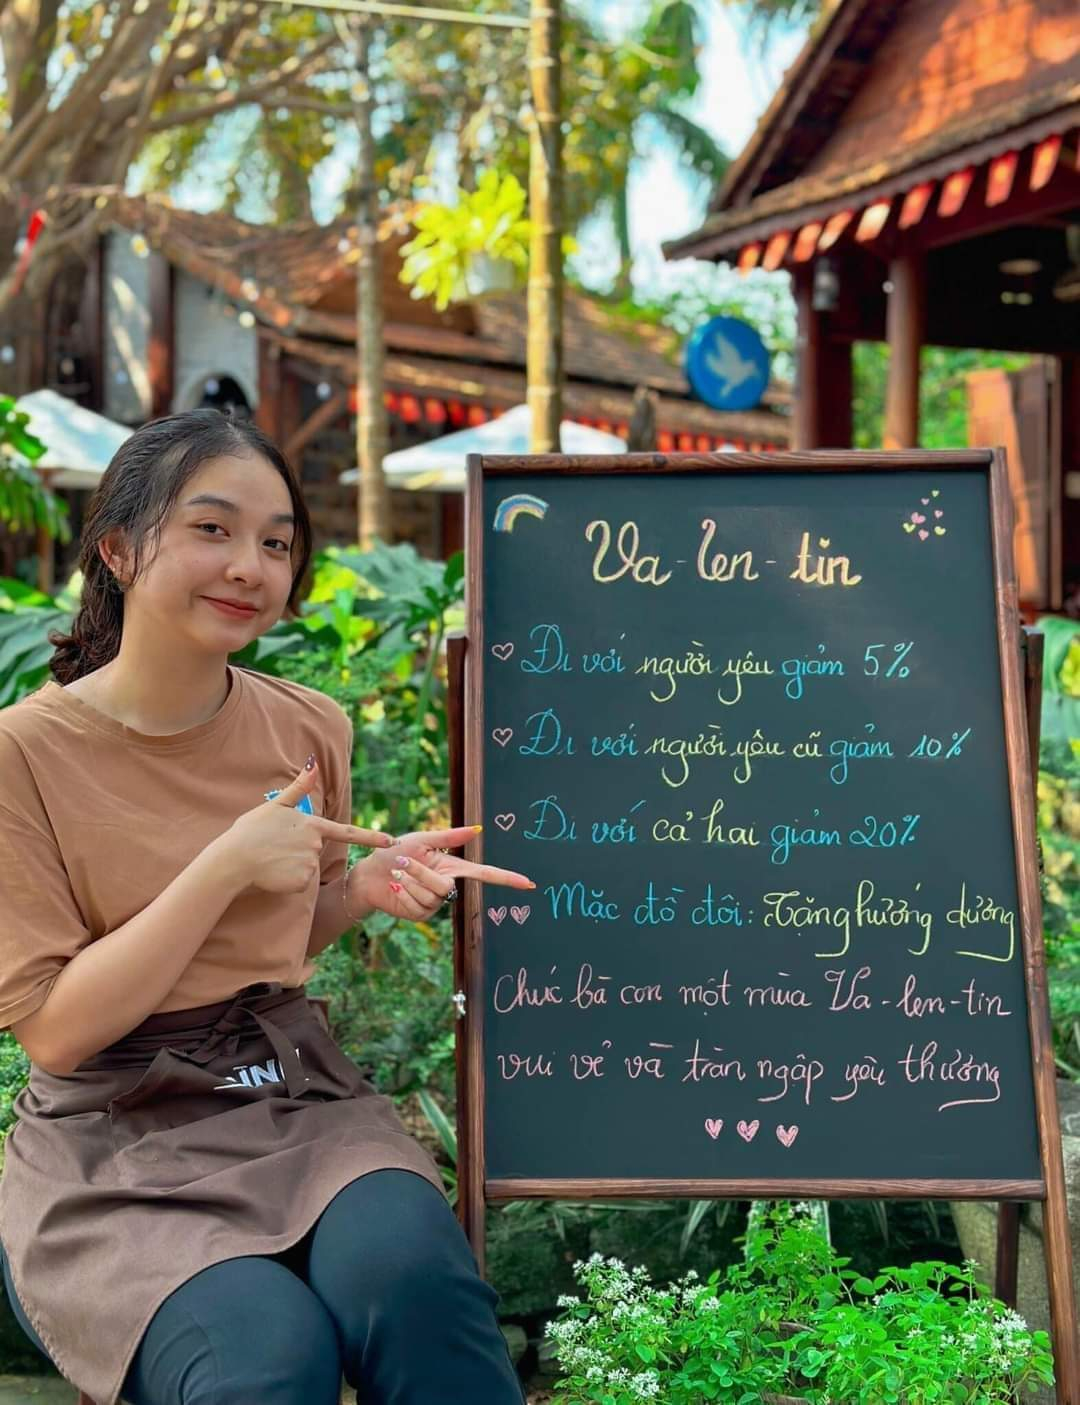 Va-len-tin
Đi với người yêu giảm 5%
Đi với người yêu cũ giảm 10%
Đi với cả hai giảm 20%
Mặc đồ đôi: Tặng hướng dương
Chúc bà con một mùa Va-len-tin
vui vẻ và tràn ngập yêu thương